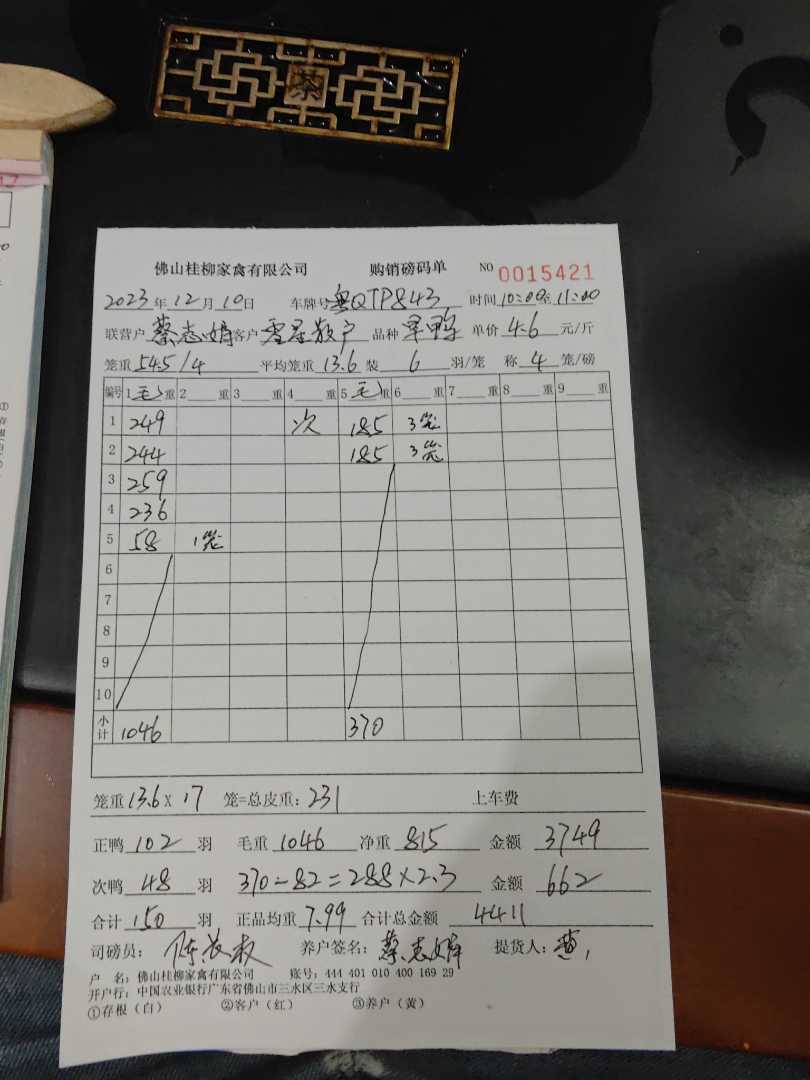 茶
佛山桂柳家禽有限公司 购销磅码单 NO 0015421
2023年12月10日 车牌号粤QTP843 时间10:00至11:00
联营户 蔡志娟 客户 零星散户 品种 单价 4.6 元/斤
笼重 54.5/4 平均笼重 13.6 装 6 羽/笼 称 4 笼/磅
编号 1 毛重 2 重 3 重 4 重 5 毛重 6 重 7 重 8 重 9 重
1 249 次 185 3笼
2 244 185 3笼
3 259
4 236
5 58 1笼
6
7
8
9
10
小计 1046 370
笼重 13.6 X 17 笼=总皮重：231 上车费
正鸭 102 羽 毛重 1046 净重 815 金额 3749
次鸭 48 羽 370-82=288×2.3 金额 662
合计 150 羽 正品均重 7.99 合计总金额 4411
司磅员： 养户签名：蔡志娟 提货人：
户 名：佛山桂柳家禽有限公司 账号：444 401 010 400 169 29
开户行：中国农业银行广东省佛山市三水区三水支行
①存根（白） ②客户（红） ③养户（黄）